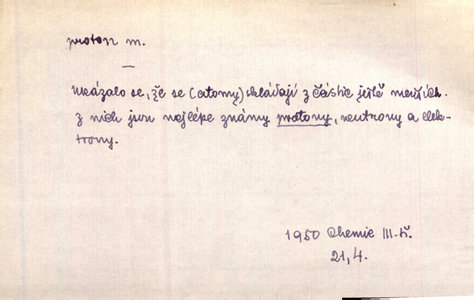 proton m.
—
Ukázalo se, že se (atomy) skládají z částic ještě menších.
Z nich jsou nejlépe známy protony, neutrony a elek-
trony.
1950 Chemie III.tř.
21,4.